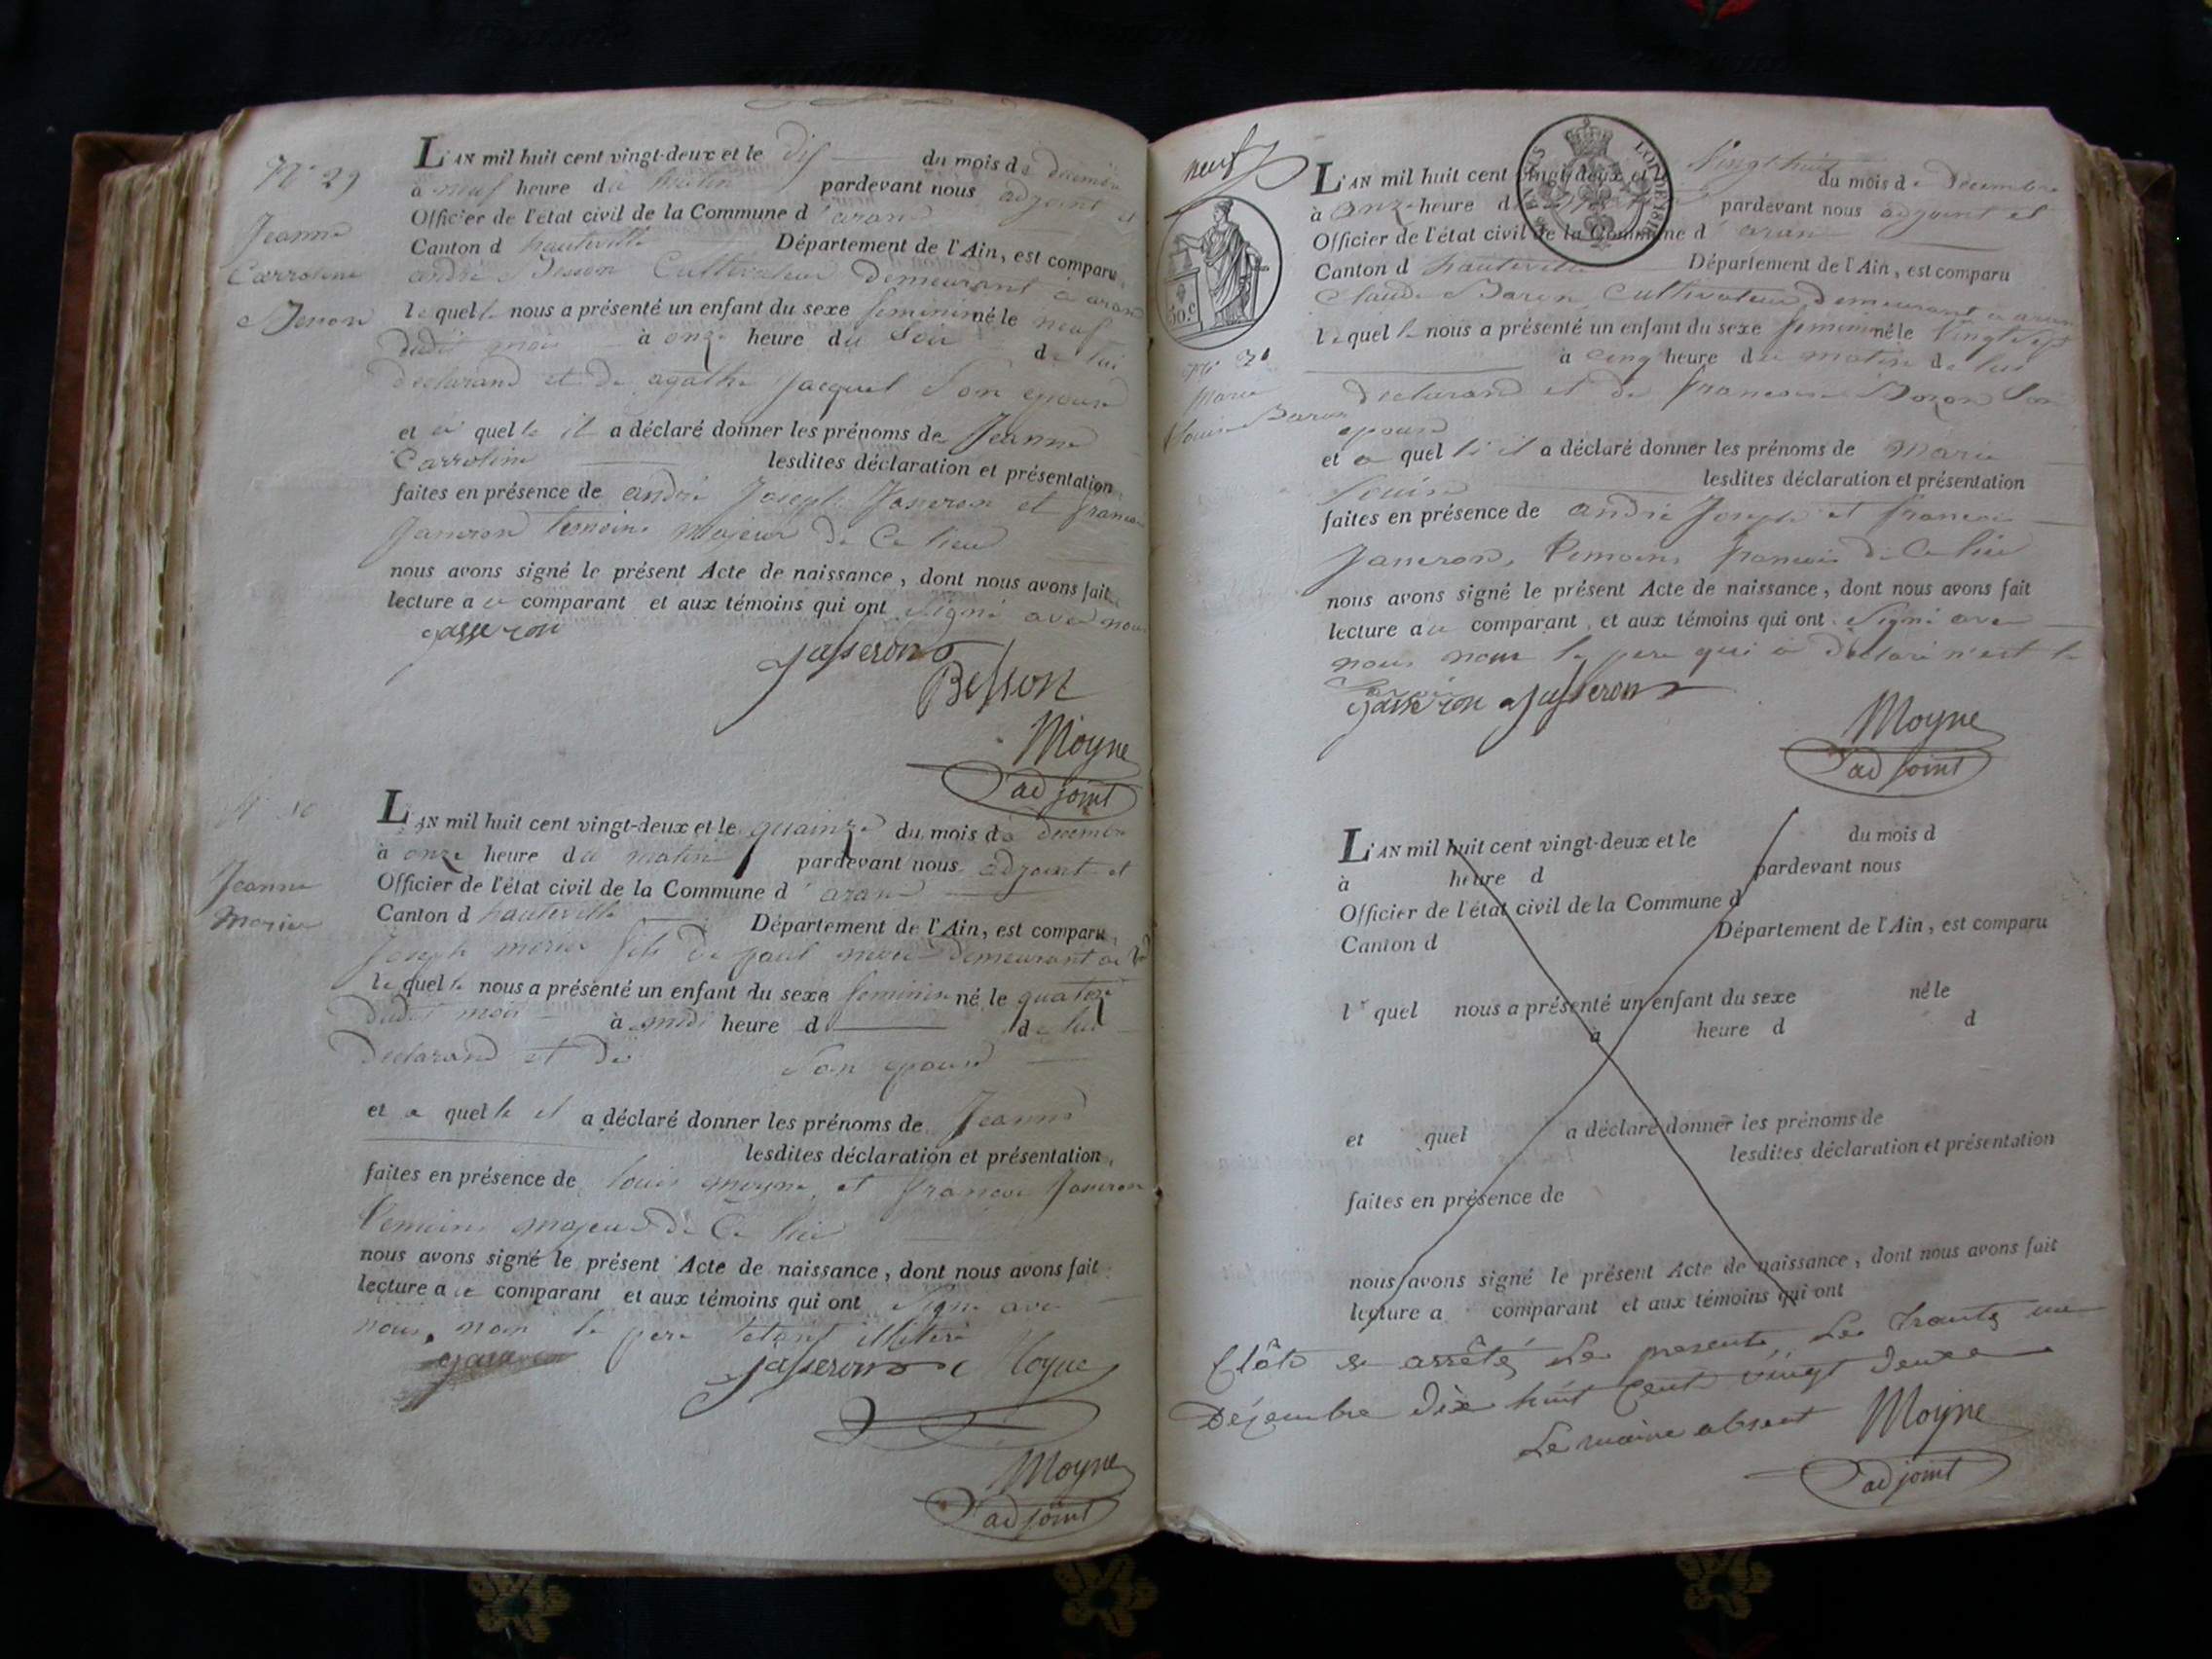 N° 29
Jeanne
Carroline
Besson
L'AN mil huit cent vingt-deux et le dix du mois de décembre
à neuf heure du matin pardevant nous adjoint et
Officier de l'état civil de la Commune d'aranc
Canton d hauteville Département de l'Ain, est comparu
andré Besson Cultivateur demeurant à aranc
lequel nous a présenté un enfant du sexe feminin né le neuf
dudit mois à onze heure du Soir de lui
declarand et de agathe Jacquet Son epouse
et a quel il a déclaré donner les prénoms de Jeanne
Carroline lesdites déclaration et présentation
faites en présence de andré Joseph Jasseron et francois
Jasseron temoins majeur de Ce lieu
nous avons signé le présent Acte de naissance, dont nous avons fait
lecture au comparant et aux témoins qui ont Signé avec nous
Jasseron
Jasseron
Besson
Moyne
adjoint
N° 30
Jeanne
L'AN mil huit cent vingt-deux et le quainze du mois de decembre
à onze heure du matin pardevant nous adjoint et
Officier de l'état civil de la Commune d'aranc
Canton d hauteville Département de l'Ain, est comparu
Joseph fils de paul demeurant
lequel nous a présenté un enfant du sexe feminin né le quatorze
dudit mois à midi heure d de lui
declarand et de Son epouse
et a quel il a déclaré donner les prénoms de Jeanne
lesdites déclaration et présentation
faites en présence de louis moyne et francois Jasseron
temoins majeur de Ce lieu
nous avons signé le présent Acte de naissance, dont nous avons fait
lecture au comparant et aux témoins qui ont Signé avec
nous, non le pere illiteré
Jasseron
Jasseron Moyne
Moyne
adjoint
neuf
50.c
N° 31
Marie
Louise
L'AN mil huit cent vingt-deux et le Vingt huit du mois de decembre
à onze heure d pardevant nous adjoint et
Officier de l'état civil de la Commune d'aranc
Canton d hauteville Département de l'Ain, est comparu
Claude Cultivateur demeurant a aranc
lequel nous a présenté un enfant du sexe feminin né le Vingt Sept
à Cinq heure du matin de lui
declarand et de Son
epouse
et a quel il a déclaré donner les prénoms de Marie
Louise lesdites déclaration et présentation
faites en présence de andré Joseph et francois
Jasseron, temoins francois de Ce lieu
nous avons signé le présent Acte de naissance, dont nous avons fait
lecture au comparant et aux témoins qui ont Signé avec
nous non le pere qui a declaré ne
Jasseron Jasseron
Moyne
adjoint
L'AN mil huit cent vingt-deux et le du mois d
à heure d pardevant nous
Officier de l'état civil de la Commune d
Canton d Département de l'Ain, est comparu
l quel nous a présenté un enfant du sexe né le
à heure d d
et quel a déclaré donner les prénoms de
lesdites déclaration et présentation
faites en présence de
nous avons signé le présent Acte de naissance, dont nous avons fait
lecture a comparant et aux témoins qui ont
Clôts & arrêté Le present, Le trante un
Décembre dix huit Cent vingt deux
Le maire absent Moyne
adjoint